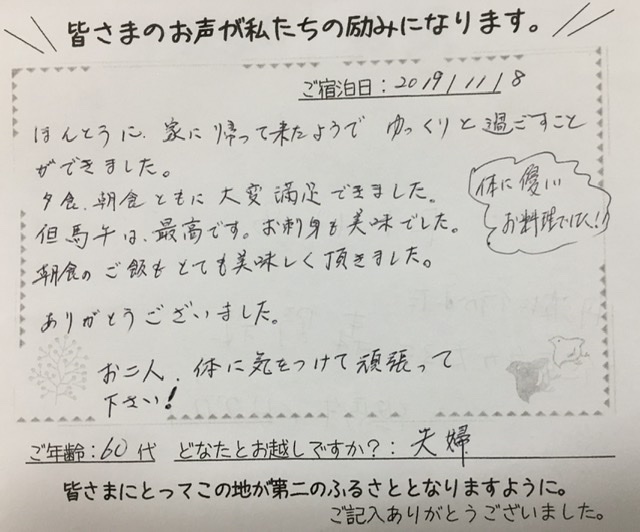 皆さまのお声が私たちの励みになります。
ご宿泊日：2019/11/8
ほんとうに、家に帰って来たようで ゆっくりと過ごすこと
ができました。
夕食、朝食ともに大変満足できました。
但馬牛は、最高です。お刺身も美味でした。
朝食のご飯もとても美味しく頂きました。
体に優しい
お料理でした！
ありがとうございました。
お二人、体に気をつけて頑張って
下さい！
ご年齢：60代 どなたとお越しですか？：夫婦
皆さまにとってこの地が第二のふるさととなりますように。
ご記入ありがとうございました。